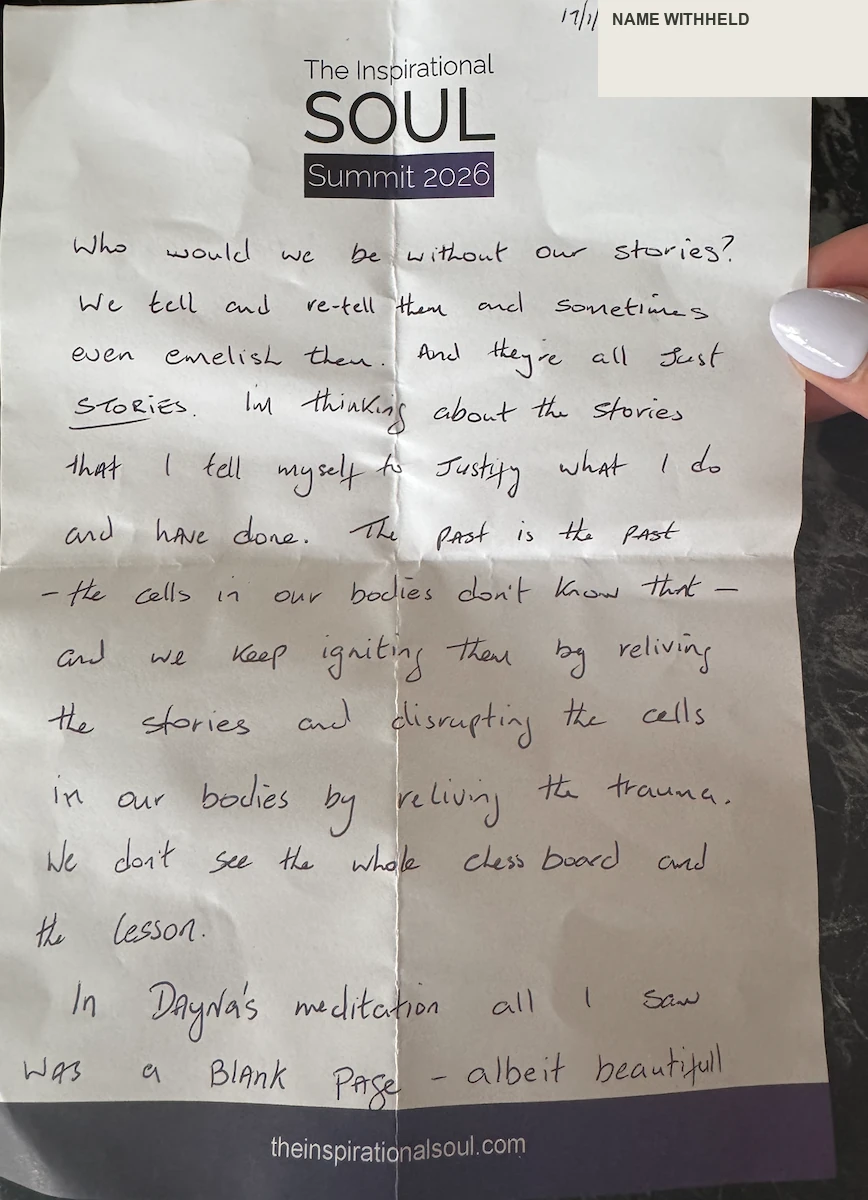 17/1/
NAME WITHHELD
The Inspirational
SOUL
Summit 2026
Who would we be without our stories?
We tell and re-tell them and sometimes
even emelish them. And they're all Just
STORIES. I'm thinking about the stories
that I tell myself to Justify what I do
and have done. The past is the past
- the cells in our bodies don't know that -
and we keep igniting them by reliving
the stories and disrupting the cells
in our bodies by reliving the trauma.
We don't see the whole chess board and
the lesson.
In Dayna's meditation all I saw
was a Blank Page - albeit beautifull
theinspirationalsoul.com